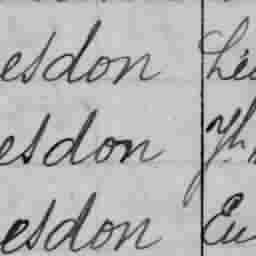 esdon Lé
esdon Th
esdon Eu